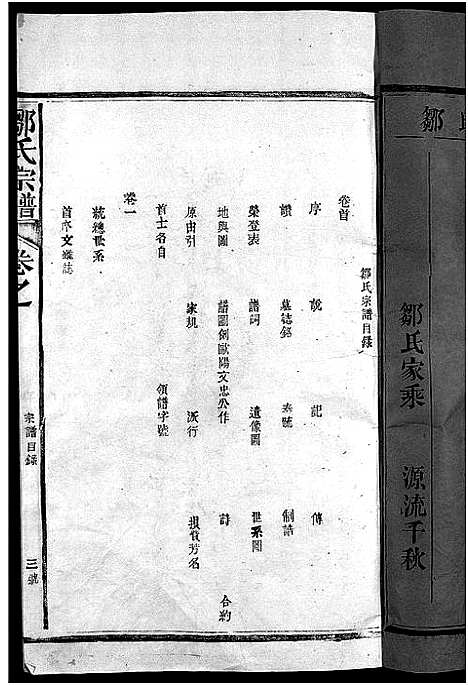 鄒氏
鄒氏家乘
源流千秋
鄒氏宗譜目錄
卷首
序 說 記 傳
讚 墓誌銘 泰號 制誥
榮登表 譜詞 遺像圖 世系圖
地輿圖 譜圖例歐陽文忠公作 詩 合約
原由引 家規 派行 損貲芳名
首士名目 領譜字號
卷一
統總世系
首序文雜誌
鄒氏宗譜
卷之
宗譜目錄
三號